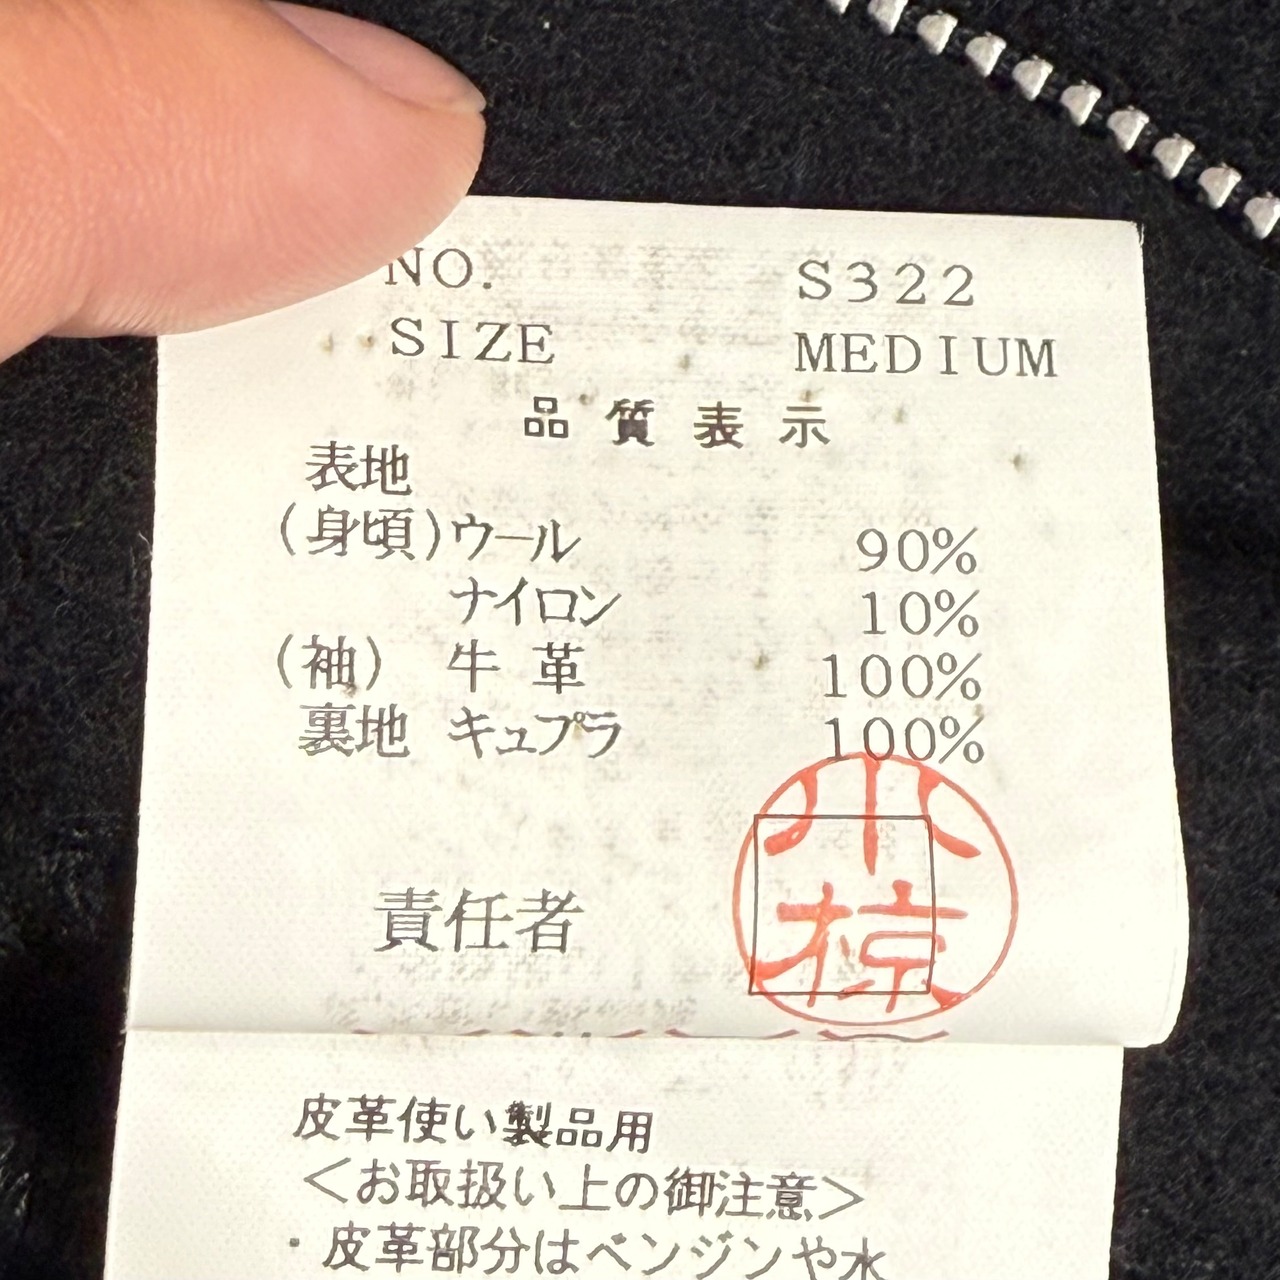 NO. S322
SIZE MEDIUM
品質表示
表地
(身頃)ウール 90%
ナイロン 10%
(袖) 牛革 100%
裏地 キュプラ 100%
責任者
小椋
皮革使い製品用
<お取扱い上の御注意>
・皮革部分はベンジンや水